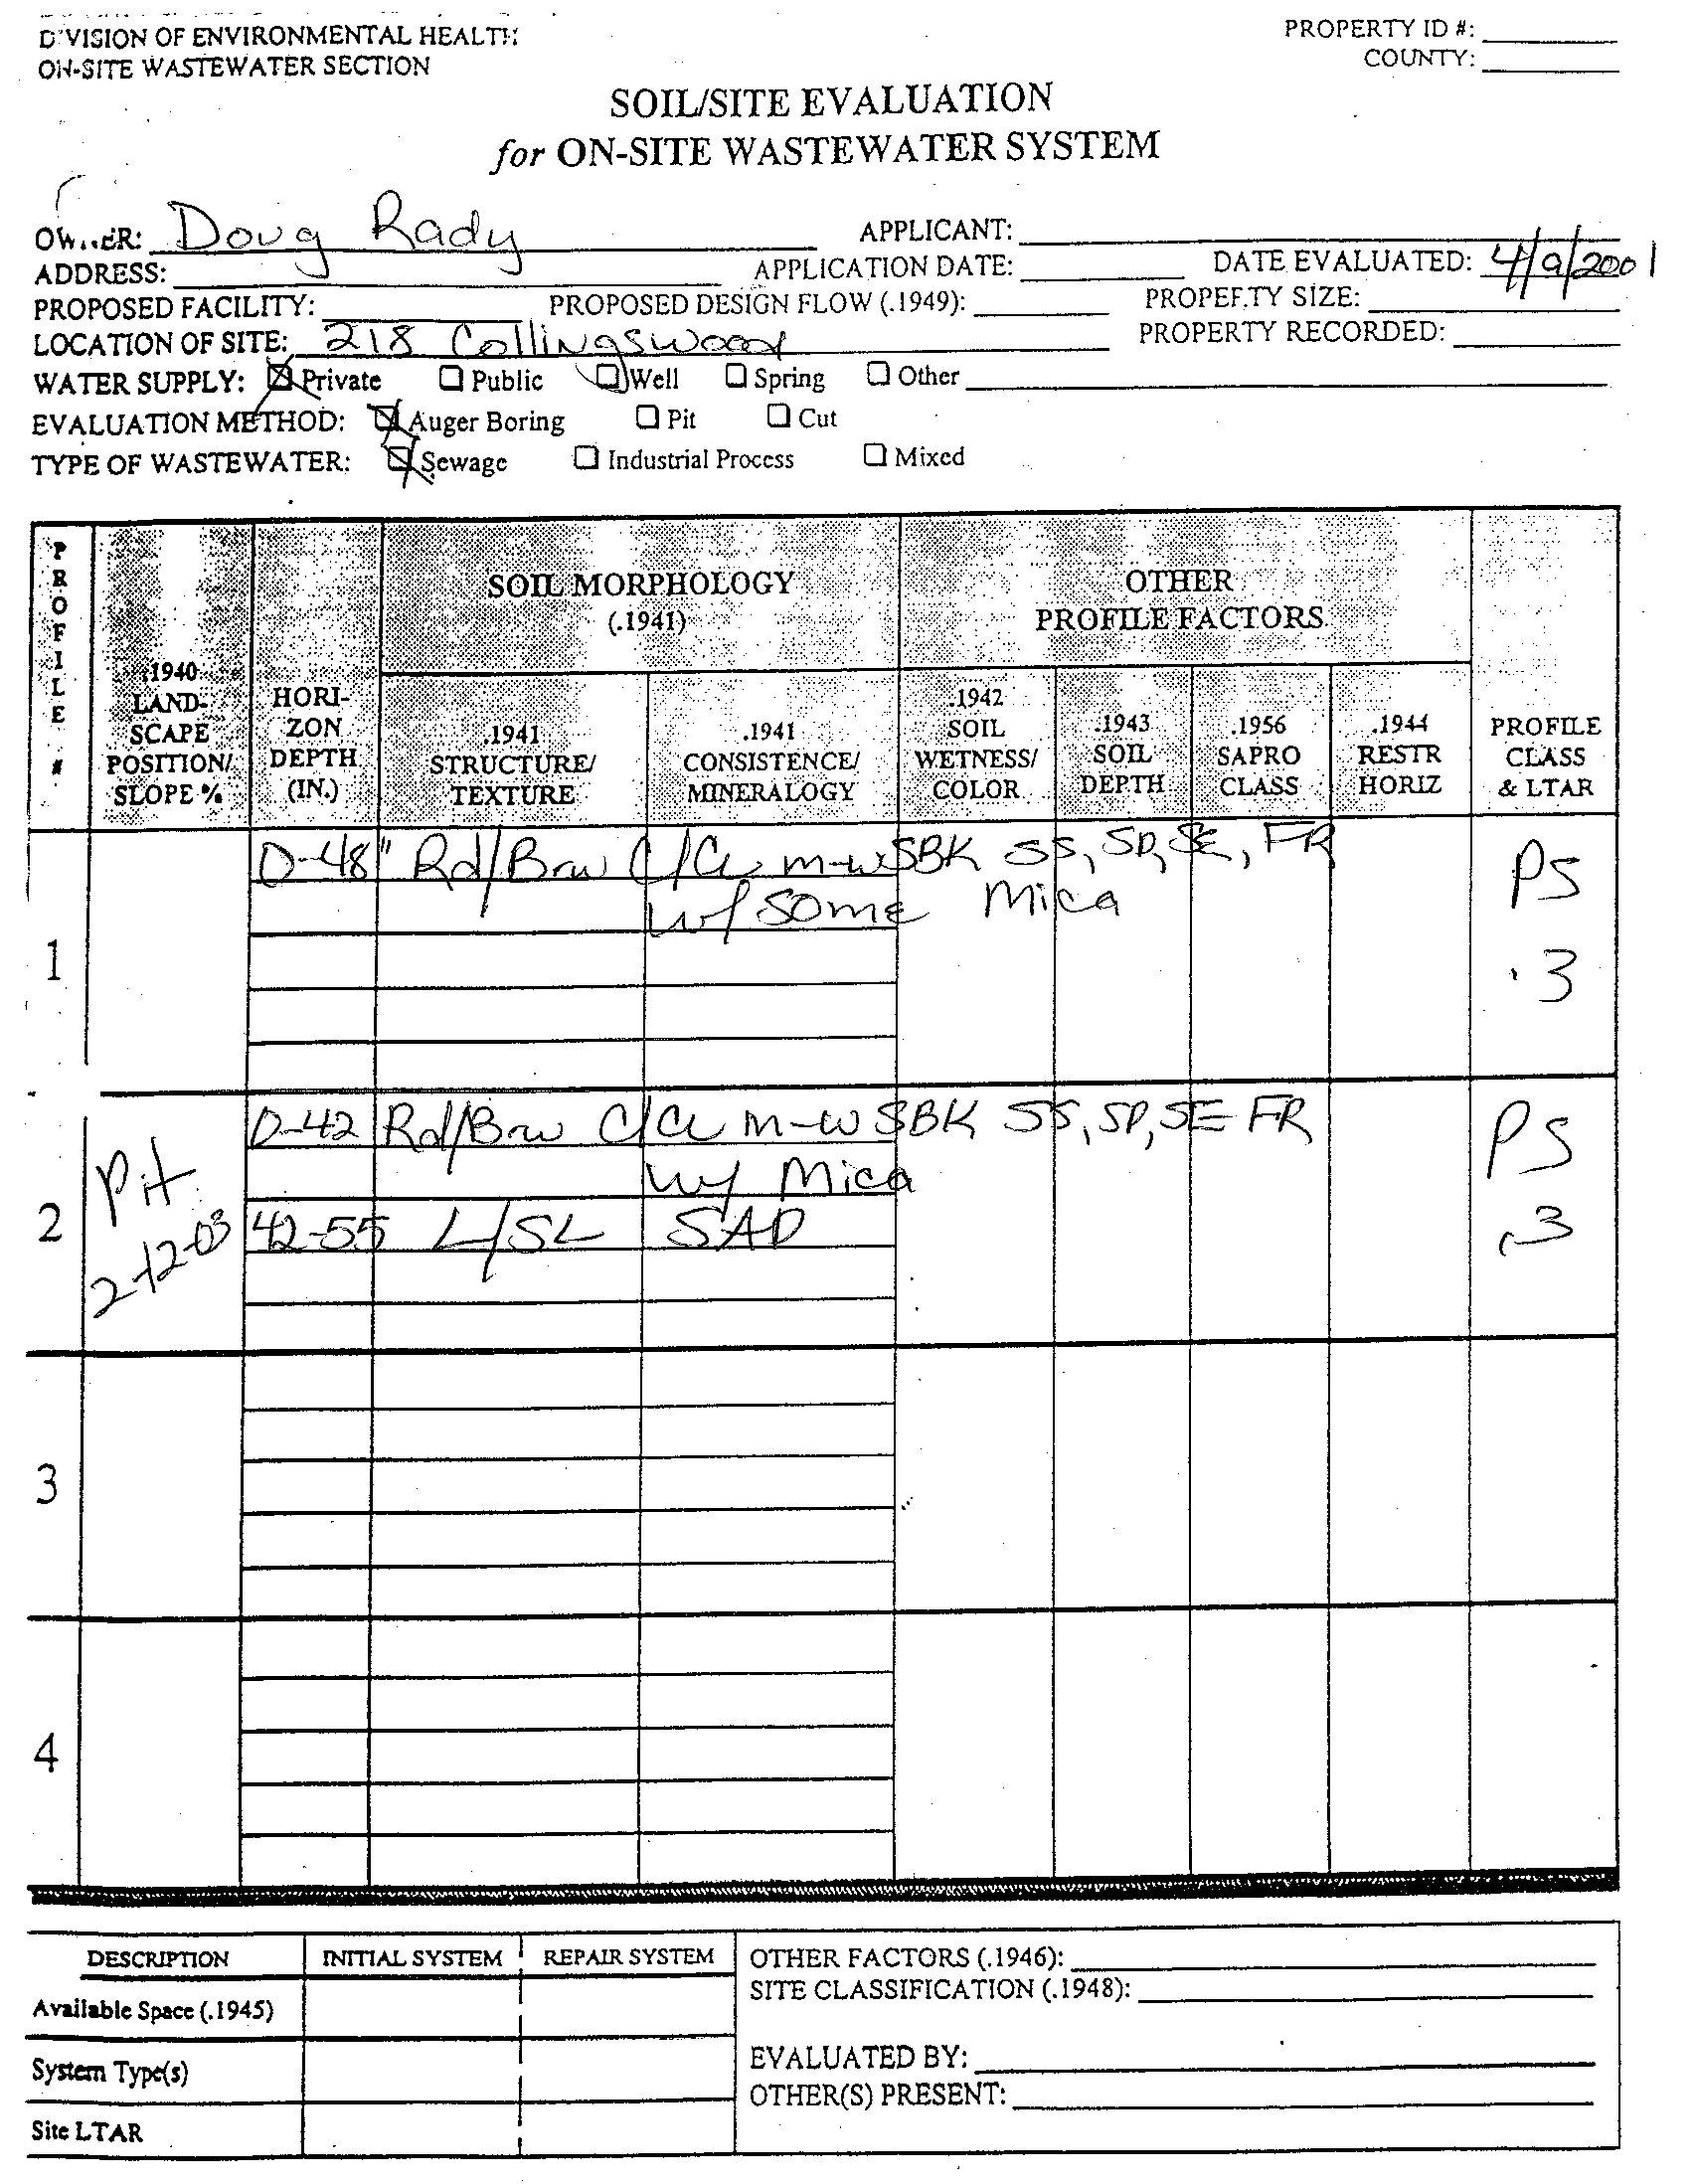 DIVISION OF ENVIRONMENTAL HEALTH
ON-SITE WASTEWATER SECTION
PROPERTY ID #:
COUNTY:
SOIL/SITE EVALUATION
for ON-SITE WASTEWATER SYSTEM
OWNER: Doug Rady APPLICANT:
ADDRESS: APPLICATION DATE: DATE EVALUATED: 4/9/2001
PROPOSED FACILITY: PROPOSED DESIGN FLOW (.1949): PROPERTY SIZE:
LOCATION OF SITE: 218 Collingswood PROPERTY RECORDED:
WATER SUPPLY: ☒ Private ☐ Public ☐ Well ☐ Spring ☐ Other
EVALUATION METHOD: ☒ Auger Boring ☐ Pit ☐ Cut
TYPE OF WASTEWATER: ☒ Sewage ☐ Industrial Process ☐ Mixed
PROFILE #
.1940 LAND-SCAPE POSITION/ SLOPE %
HORI-ZON DEPTH (IN.)
SOIL MORPHOLOGY (.1941)
.1941 STRUCTURE/ TEXTURE
.1941 CONSISTENCE/ MINERALOGY
OTHER PROFILE FACTORS
.1942 SOIL WETNESS/ COLOR
.1943 SOIL DEPTH
.1956 SAPRO CLASS
.1944 RESTR HORIZ
PROFILE CLASS & LTAR
1
0-48" Rd/Brw C/CL m-wSBK SS, SP, SE, FR
w/ some Mica
PS
.3
2
Pit
2-12-03
0-42 Rd/Brw C/CL m-w SBK SS, SP, SE FR
w/ Mica
42-55 L/SL SAP
PS
.3
3
4
DESCRIPTION INITIAL SYSTEM REPAIR SYSTEM
Available Space (.1945)
System Type(s)
Site LTAR
OTHER FACTORS (.1946):
SITE CLASSIFICATION (.1948):
EVALUATED BY:
OTHER(S) PRESENT: